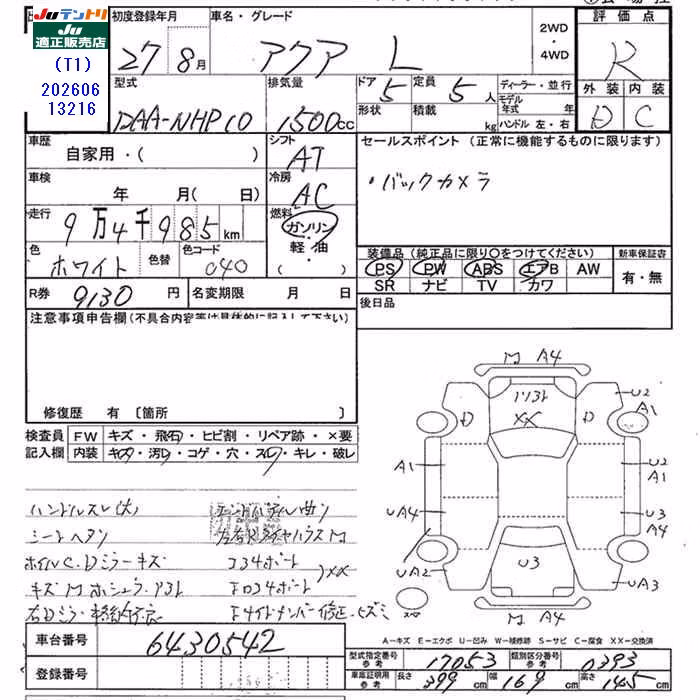 JUテントリ
JU
適正販売店
(T1)
202606
13216
初度登録年月
27 8月
車名・グレード
アクア L
2WD
・
4WD
評価点
R
外装 内装
D C
型式
DAA-NHP10
排気量
1500cc
ドア 5
定員 5人
形状
積載 kg
ディーラー・並行
モデル
年式 年
ハンドル 左・右
車歴
自家用・( )
シフト
AT
セールスポイント (正常に機能するものに限ります)
・バックカメラ
車検
年 月(日)
冷房
AC
走行
9万4千985km
燃料
ガソリン
軽・油
・( )
色
ホワイト
色替
色コード
040
装備品 (純正品に限り○をつけてください)
PS PW ABS エアB AW
SR ナビ TV カワ
新車保証書
有・無
R券 9130円
名変期限 月 日
後日品
注意事項申告欄 (不具合内容等は具体的に記入して下さい)
修復歴 有 〔箇所 〕
検査員
記入欄
FW キズ・飛石・ヒビ割・リペア跡・×要
内装 キズ・汚レ・コゲ・穴・スレ・キレ・破レ
ハンドルスレ(大)
シートヘタン
左右Rタイヤハウス M
コ34ボード
キズ M
エロ34ボード
XX
M A4
XX
D
D
U2
A1
A1
U2
A1
UA4
U3
A4
UA2
U3
UA3
M A4
A－キズ E－エクボ U－凹み W－補修跡 S－サビ C－腐食 XX－交換済
車台番号 6430542
登録番号
型式指定番号
参考
17053
類別区分番号
参考
0393
車庫証明用
参考
長さ 399cm
幅 169cm
高さ 145cm